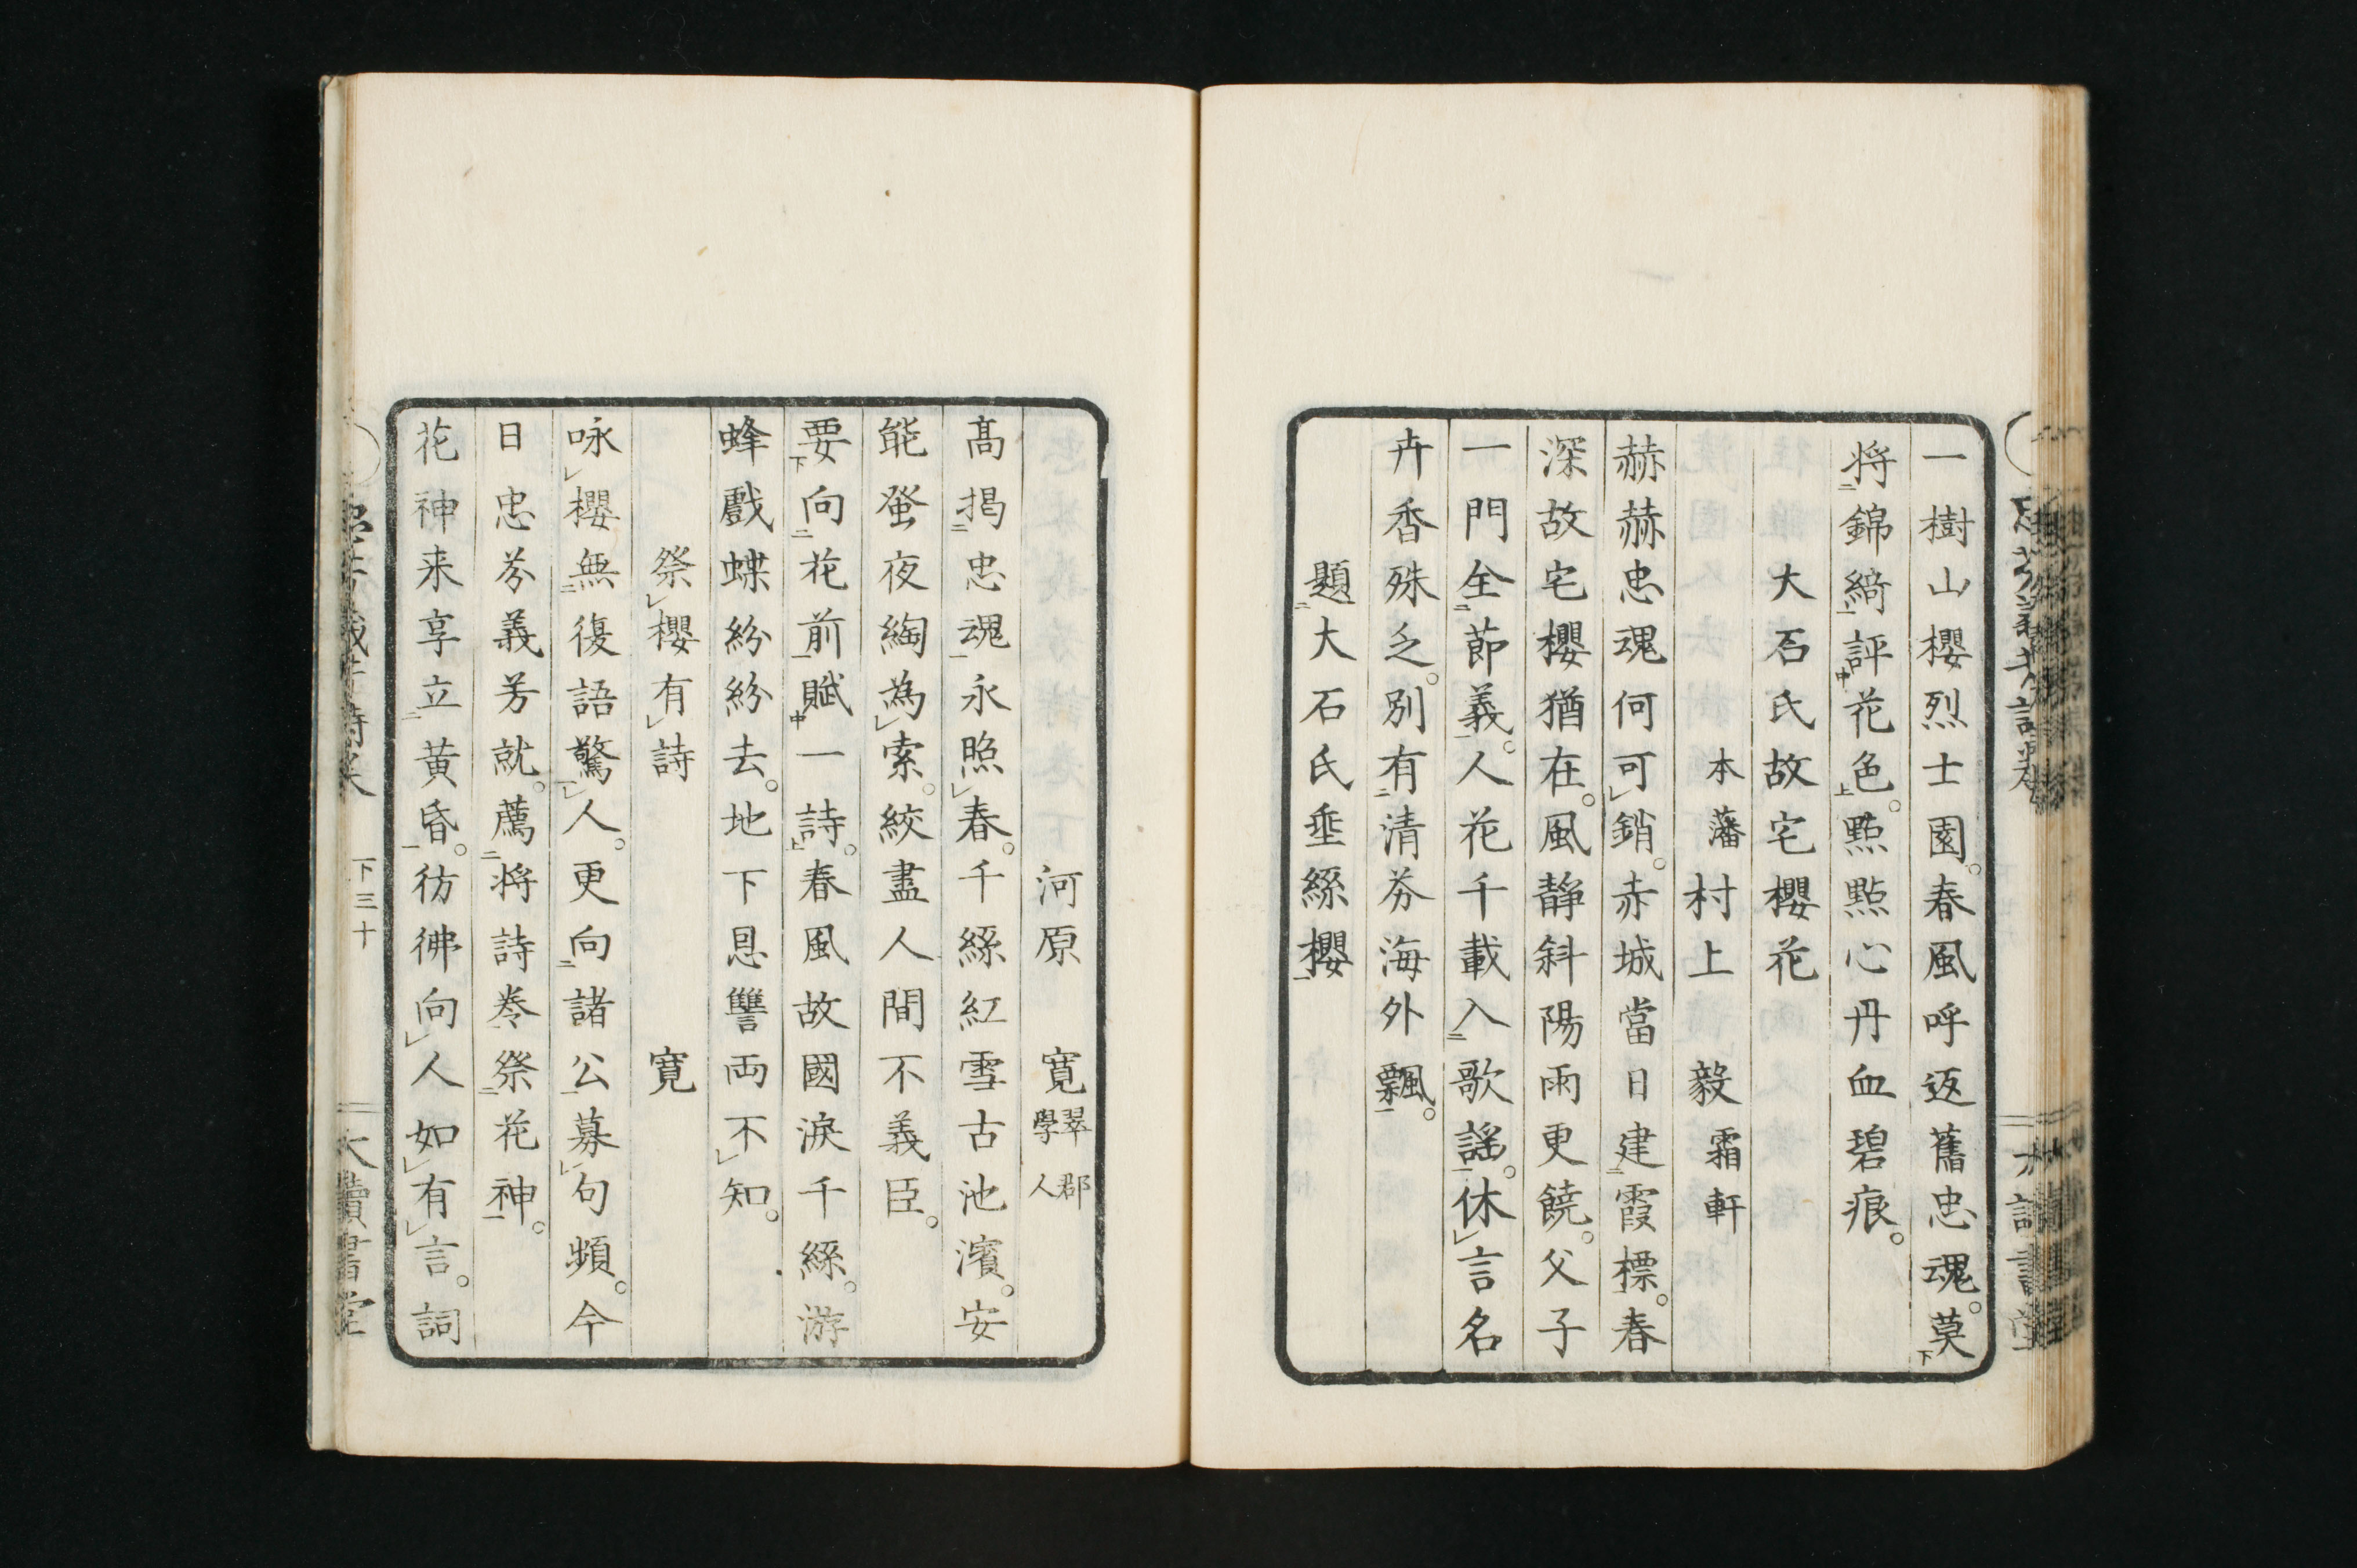 一樹山櫻烈士園。春風呼返舊忠魂。莫
将錦綺評花色。㸃㸃心丹血碧痕。
大石氏故宅櫻花
本藩村上毅霜軒
赫赫忠魂何可銷。赤城當日建霞標。春
深故宅櫻猶在。風静斜陽雨更饒。父子
一門全節義。人花千載入歌謡。休言名
卉香殊乏。別有清芬海外飄。
題大石氏垂絲櫻
河原寛翠學郡人
髙揭忠魂永照春。千絲紅雪古池濱。安
能蛍夜綯為索。絞盡人間不義臣。
要向花前賦一詩。春風故國淚千絲。游
蜂戲蝶紛紛去。地下恩讐両不知。
祭櫻有詩　寛
咏櫻無復語驚人。更向諸公募句頻。今
日忠芬義芳就。薦将詩巻祭花神。
花神来享立黄昏。彷彿向人如有言。詞
下三十
讀書堂